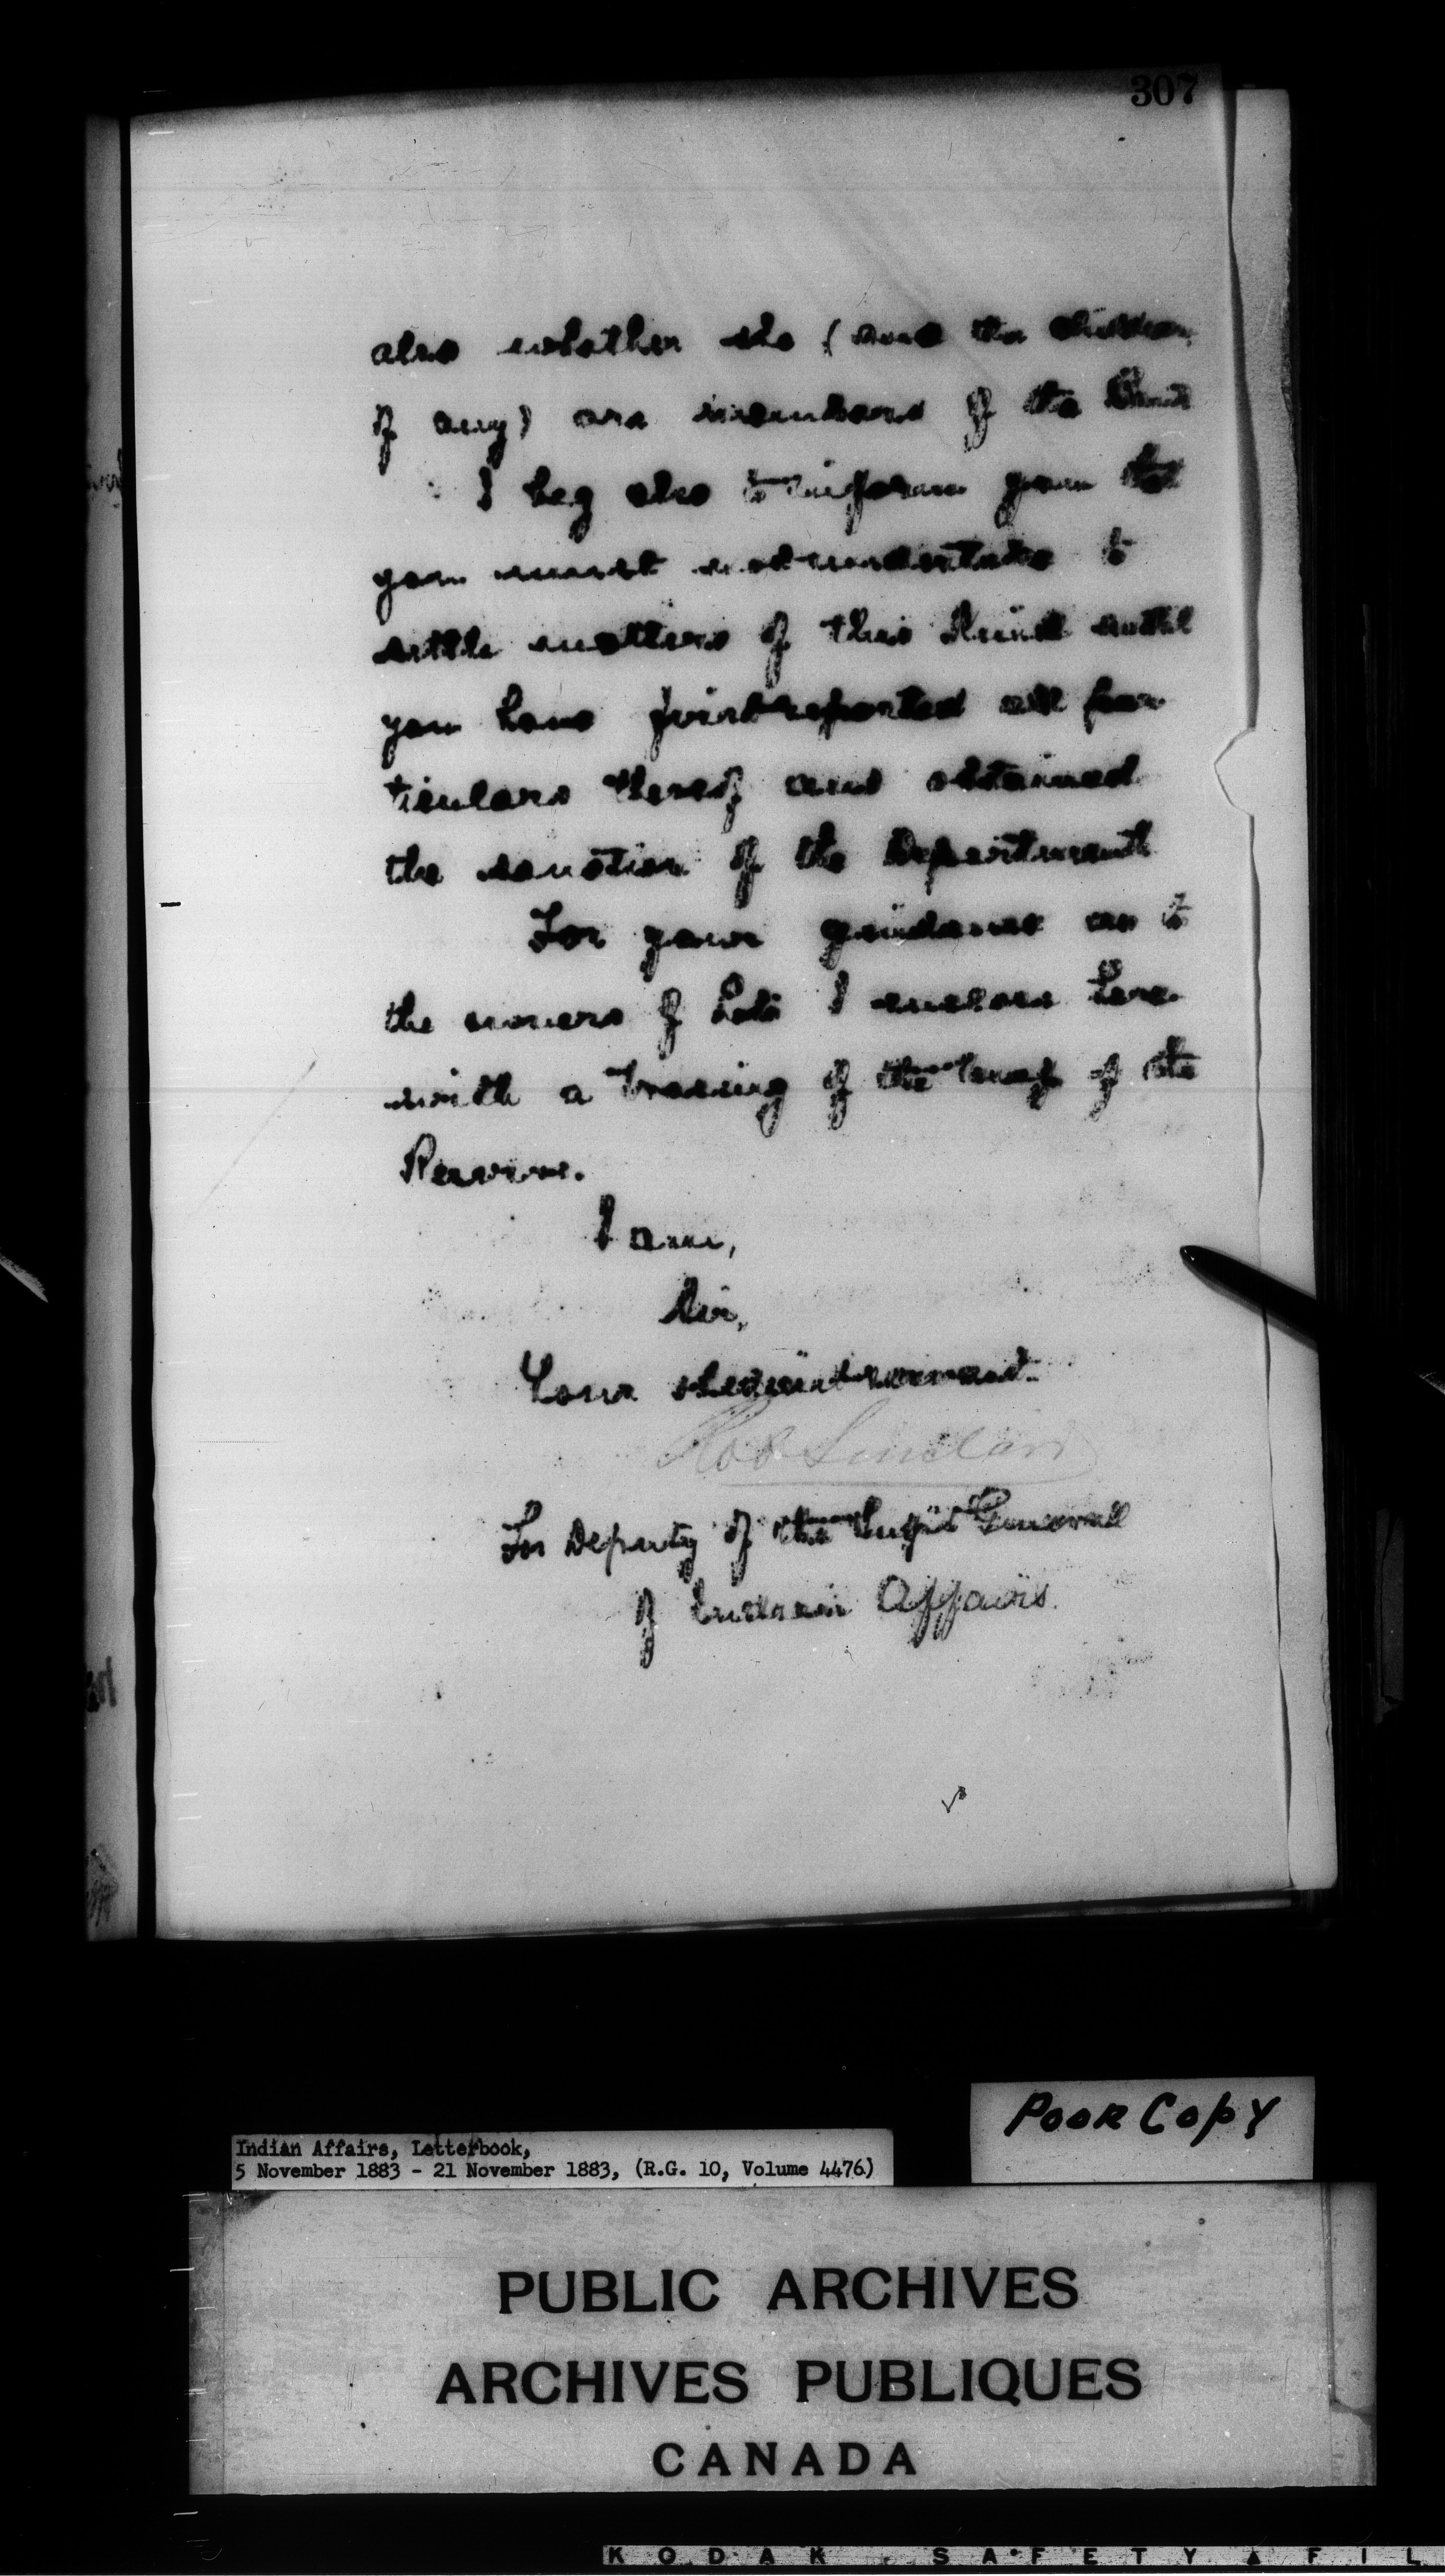 307
also whether she (and the children
if any) are members of the Band
I beg also to inform you that
you must not undertake to
settle matters of this kind until
you have first reported all par
ticulars thereof and obtained
the sanction of the Department
For your guidance as to
the owners of Lots I enclose here
with a tracing of the map of the
Reserve.
I am,
Sir,
Your obedient servant
Rob Sinclair
For Deputy of the Supt General
of Indian Affairs.
POOR COPY
Indian Affairs, Letterbook,
5 November 1883 - 21 November 1883, (R.G. 10, Volume 4476)
PUBLIC ARCHIVES
ARCHIVES PUBLIQUES
CANADA
KODAK SAFETY ▲ FIL